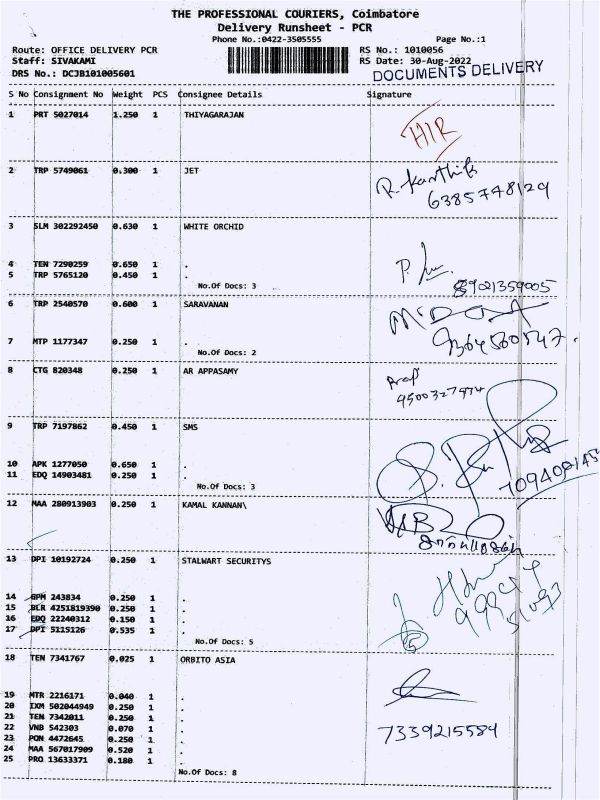 THE PROFESSIONAL COURIERS, Coimbatore
Delivery Runsheet - PCR
Phone No.:0422-3505555 Page No.:1
Route: OFFICE DELIVERY PCR RS No.: 1010056
Staff: SIVAKAMI RS Date: 30-Aug-2022
DRS No.: DCJB101005601 DOCUMENTS DELIVERY
S No Consignment No Weight PCS Consignee Details Signature
1 PRT 5027014 1.250 1 THIYAGARAJAN
2 TRP 5749061 0.300 1 JET
R. Karthik
6385748129
3 SLM 302292450 0.630 1 WHITE ORCHID
4 TEN 7290259 0.650 1 .
5 TRP 5765120 0.450 1 .
No.Of Docs: 3
6 TRP 2540570 0.600 1 SARAVANAN
7 MTP 1177347 0.250 1 .
No.Of Docs: 2
8 CTG 820348 0.250 1 AR APPASAMY
9 TRP 7197862 0.450 1 SMS
10 APK 1277050 0.650 1 .
11 EDQ 14903481 0.250 1 .
No.Of Docs: 3
12 MAA 280913903 0.250 1 KAMAL KANNAN\
13 DPI 10192724 0.250 1 STALWART SECURITYS
14 GPM 243834 0.250 1 .
15 BLR 4251819390 0.250 1 .
16 EDQ 22240312 0.150 1 .
17 DPI 5115126 0.535 1 .
No.Of Docs: 5
18 TEN 7341767 0.025 1 ORBITO ASIA
19 MTR 2216171 0.040 1 .
20 IXM 502044949 0.250 1 .
21 TEN 7342011 0.250 1 .
22 VNB 542303 0.070 1 .
23 PON 4472645 0.250 1 .
24 MAA 567017909 0.520 1 .
25 PRO 13633371 0.180 1 .
7339215584
No.Of Docs: 8